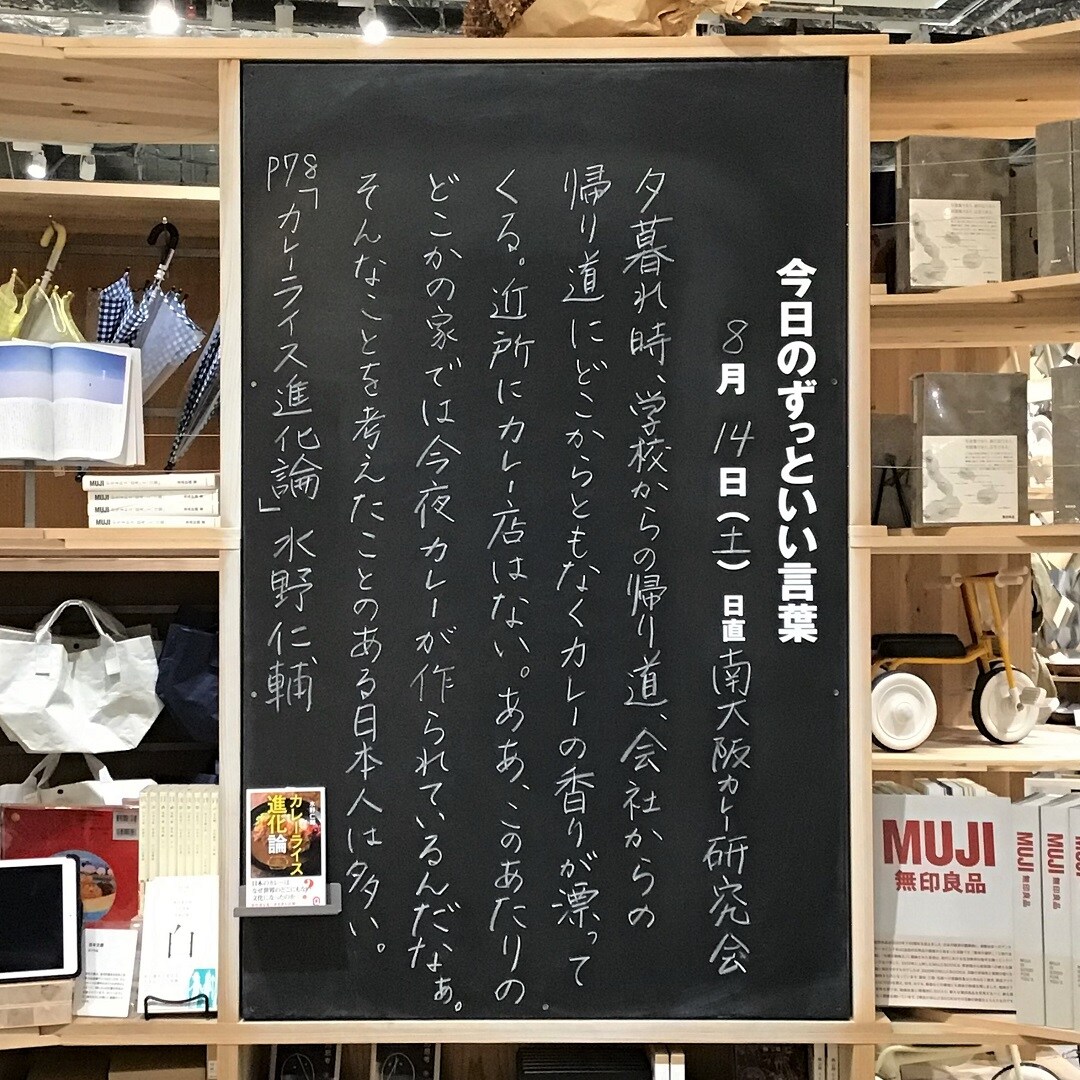 今日のずっといい言葉
8月14日(土) 日直 南大阪カレー研究会
夕暮れ時、学校からの帰り道、会社からの
帰り道にどこからともなくカレーの香りが漂って
くる。近所にカレー店はない。ああ、このあたりの
どこかの家では今夜カレーが作られているんだなぁ。
そんなことを考えたことのある日本人は多い。
P78「カレーライス進化論」水野仁輔
カレーライス
進化論
水野仁輔
日本のカレーは
なぜ世界のどこにもない
文化になったのか?
MUJI
無印良品
MUJI 無印良品
MUJI 無印良品
MUJI
MUJI
MUJI
白